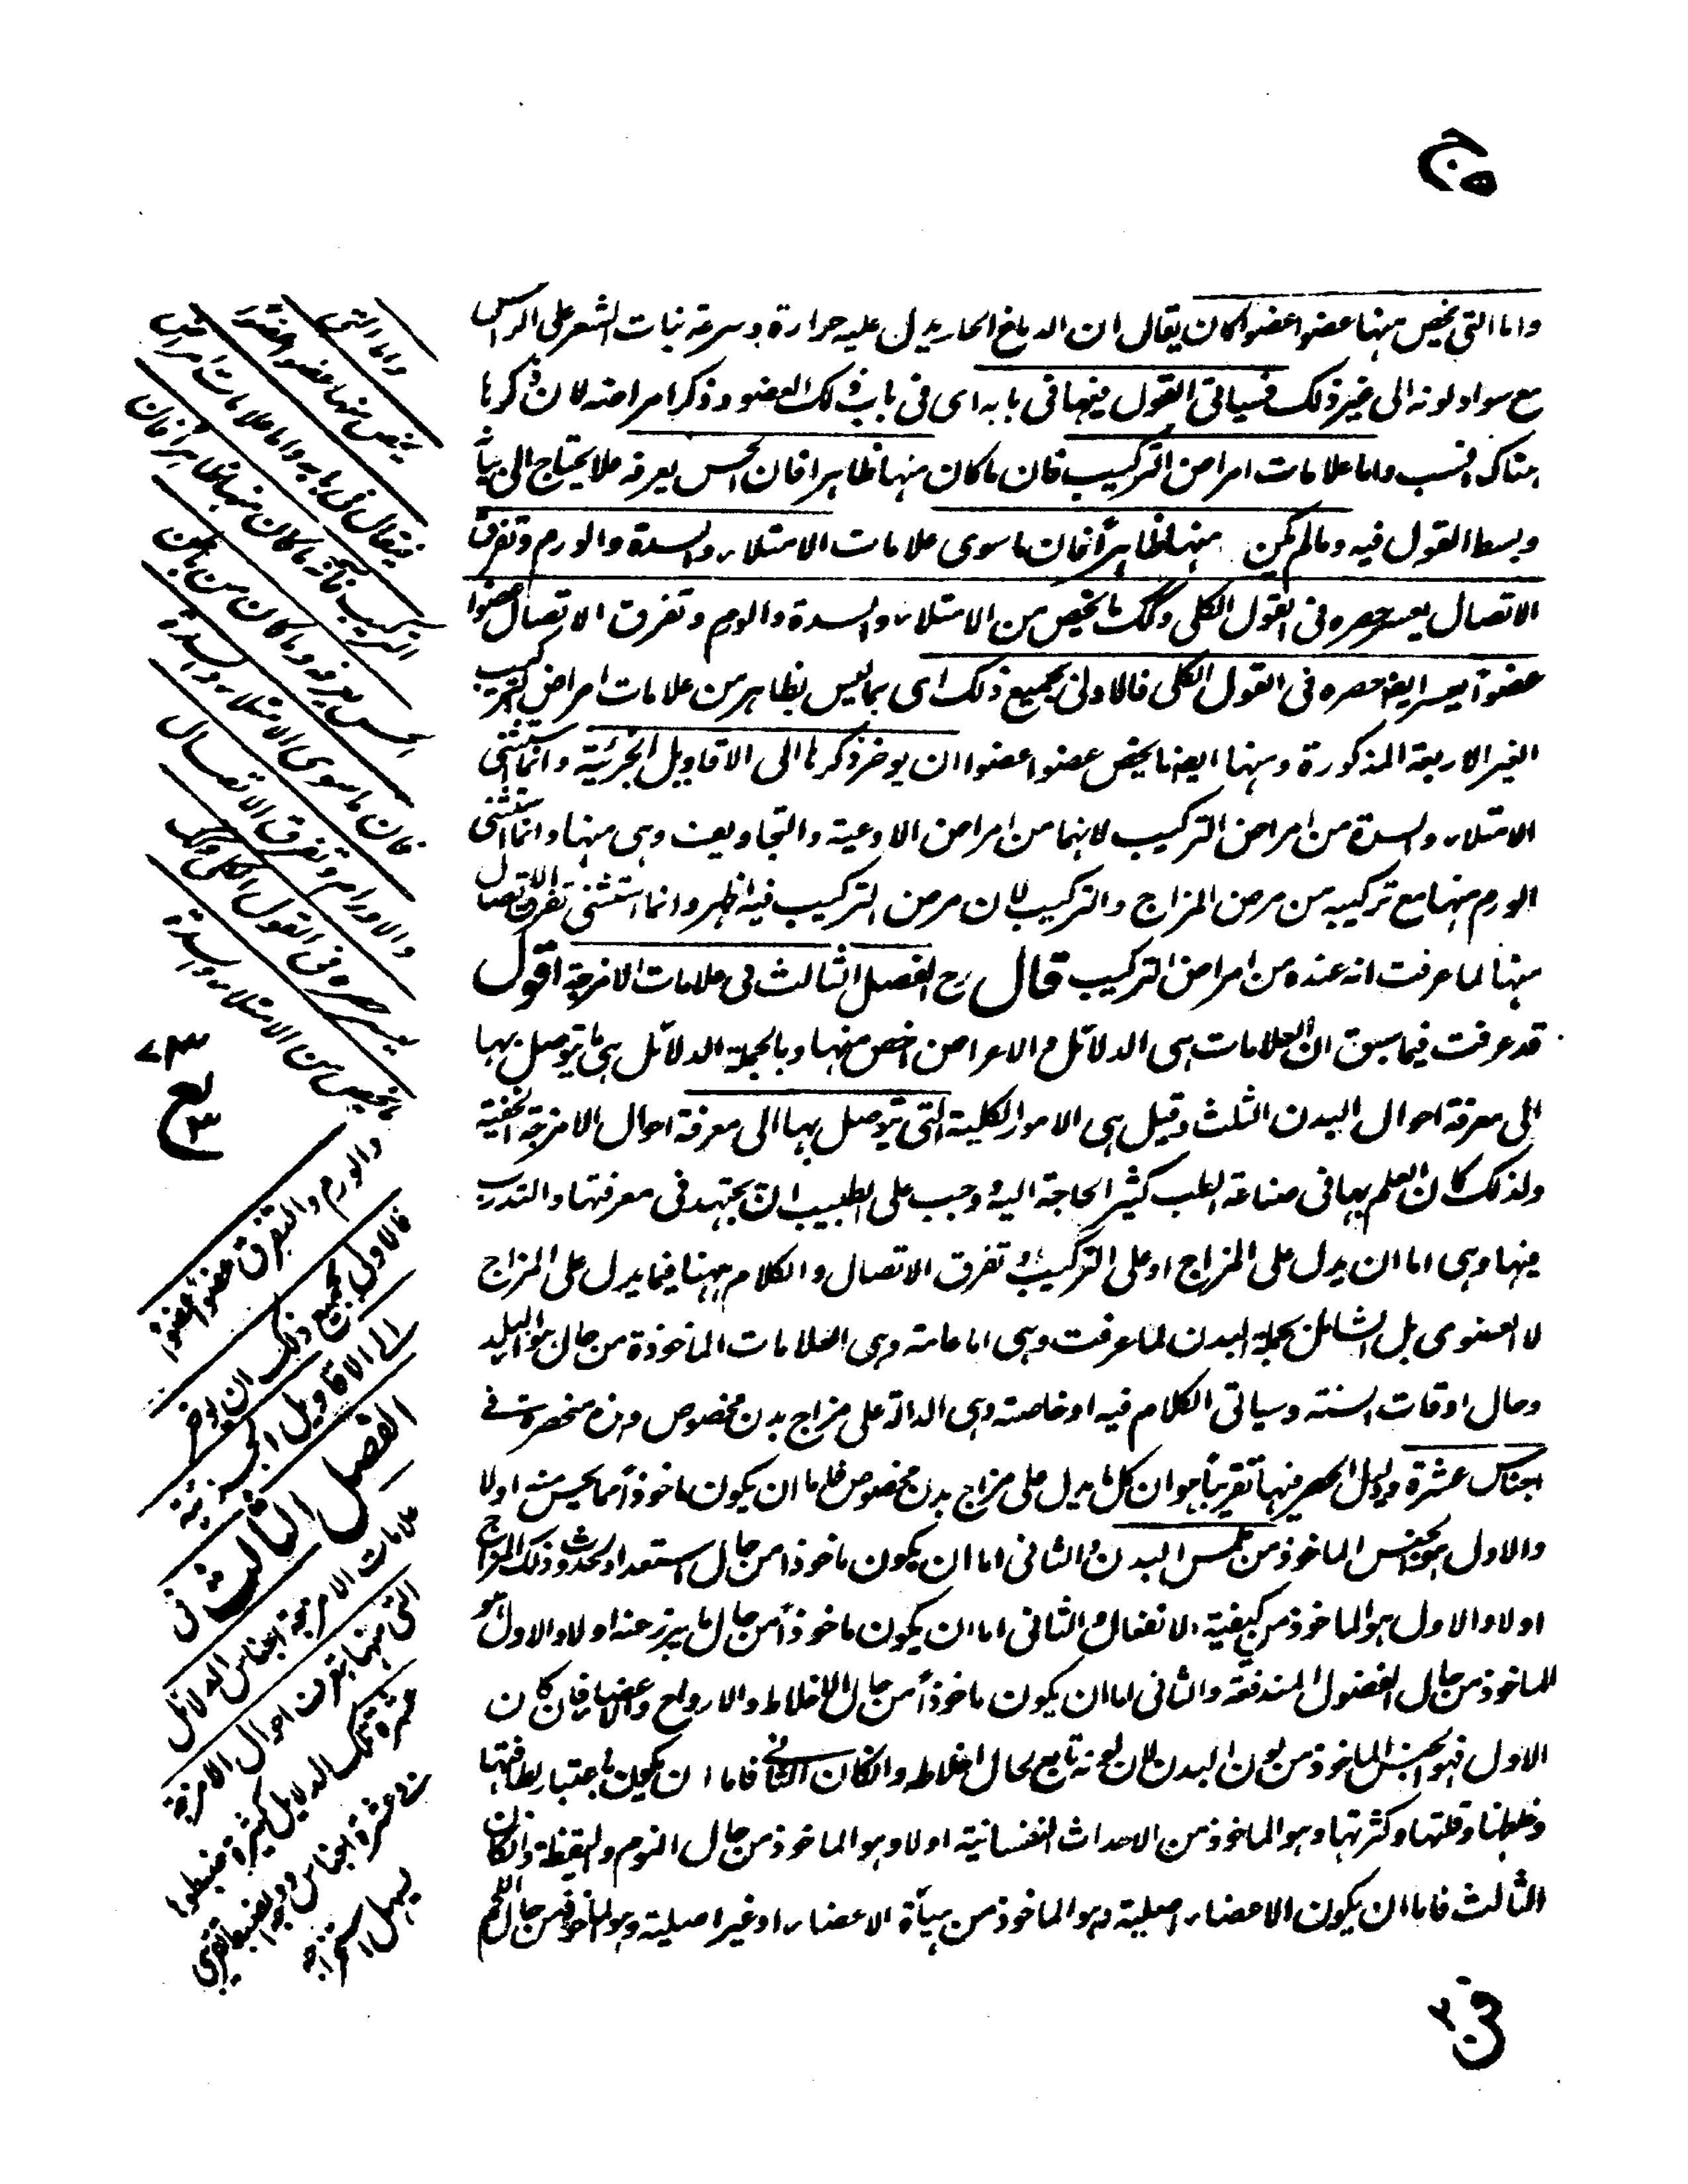 واما التى يخص منها عضوا عضوا كان يقال ان الدماغ الحار يدل عليه حرارة وسرعة نبات الشعر على الراس
مع سواد لونه الى غير ذلك فسياتى القول فيها فى بابه اى فى باب ذلك العضو وذكر امراضه لان ذكرها
هناك انسب واما علامات امراض التركيب فان ما كان منها ظاهرا فان الحس يعرفه فلا يحتاج الى بيانه
وبسط القول فيه وما لم يكن منها ظاهرا فان ما سوى علامات الامتلاء والسدة والورم وتفرق
الاتصال يعسر حصره فى القول الكلى وكذلك ما يخص من الامتلاء والسدة والورم وتفرق الاتصال عضوا
عضوا يعسر ايضا حصره فى القول الكلى فالاولى بجميع ذلك اى بما ليس بظاهر من علامات امراض التركيب
الغير الاربعة المذكورة ومنها ايضا ما يخص عضوا عضوا ان يوخر ذكرها الى الاقاويل الجزئية وانما استثنى
الامتلاء والسدة من امراض التركيب لانهما من امراض الاوعية والتجاويف وهى منها وانما استثنى
الورم منها مع تركيبه من مرض المزاج والتركيب لان مرض التركيب فيه اظهر وانما استثنى تفرق الاتصال
منها لما عرفت انه عنده من امراض التركيب قال رح الفصل الثالث فى علامات الامزجة اقول
قد عرفت فيما سبق ان العلامات هى الدلائل والاعراض اخص منها وبالجملة الدلائل هى ما يتوصل بها
الى معرفة احوال البدن الثلث وقيل هى الامور الكلية التى يتوصل بها الى معرفة احوال الامزجة الخفية
ولذلك كان العلم بها فى صناعة الطب كثير الحاجة اليه وجب على الطبيب ان يجتهد فى معرفتها والتدرب
فيها وهى اما ان يدل على المزاج او على التركيب او تفرق الاتصال والكلام ههنا فيما يدل على المزاج
لا العضوى بل الشامل بجملة البدن لما عرفت وهى اما عامة وهى العلامات الماخوذة من حال هواء البلد
وحال اوقات السنة وسياتى الكلام فيه او خاصة وهى الدالة على مزاج بدن مخصوص وهذه منحصرة فى
اجناس عشرة ودليل الحصر فيها تقريبا هو ان كل ما يدل على مزاج بدن مخصوص فاما ان يكون ماخوذا مما يحس منه اولا
والاول هو الجنس الماخوذ من لمس البدن والثانى اما ان يكون ماخوذا من حال استعداد لحدوث ذلك المزاج
اولا والاول هو الماخوذ من كيفية الانفعال والثانى اما ان يكون ماخوذا من حال ما يبرز عنه اولا والاول هو
الماخوذ من حال الفضول المندفعة والثانى اما ان يكون ماخوذا من حال الاخلاط والارواح والاعضاء فان كان
الاول فهو الجنس الماخوذ من لون البدن لان لونه تابع لحال اخلاطه وان كان الثانى فاما ان يكون باعتبار لطافتها
وغلظها وقلتها وكثرتها وهو الماخوذ من الاحداث النفسانية اولا وهو الماخوذ من حال النوم واليقظة وان كان
الثالث فاما ان يكون الاعضاء اصلية وهو الماخوذ من هيأة الاعضاء او غير اصلية وهو الماخوذ من حال اللحم
واما التى
يخص منها عضوا عضوا
فيقال فى بابه واما علامات امراض
التركيب فانه ما كان منها ظاهرا فان
الحس يعرفه وما كان من باطن
فان ما سوى الامتلاء والسدة
والاورام وتفرق الاتصال
يعسر حصره فى القول الكلى وكذلك
ما يخص من الامتلاء والسدة
والورم والتفرق عضوا عضوا
فالاولى بجميع ذلك ان يوخر
الى الاقاويل الجزئية
الفصل الثالث فى
علامات الامزجة اجناس الدلائل
التى منها يتعرف احوال الامزجة
عشرة